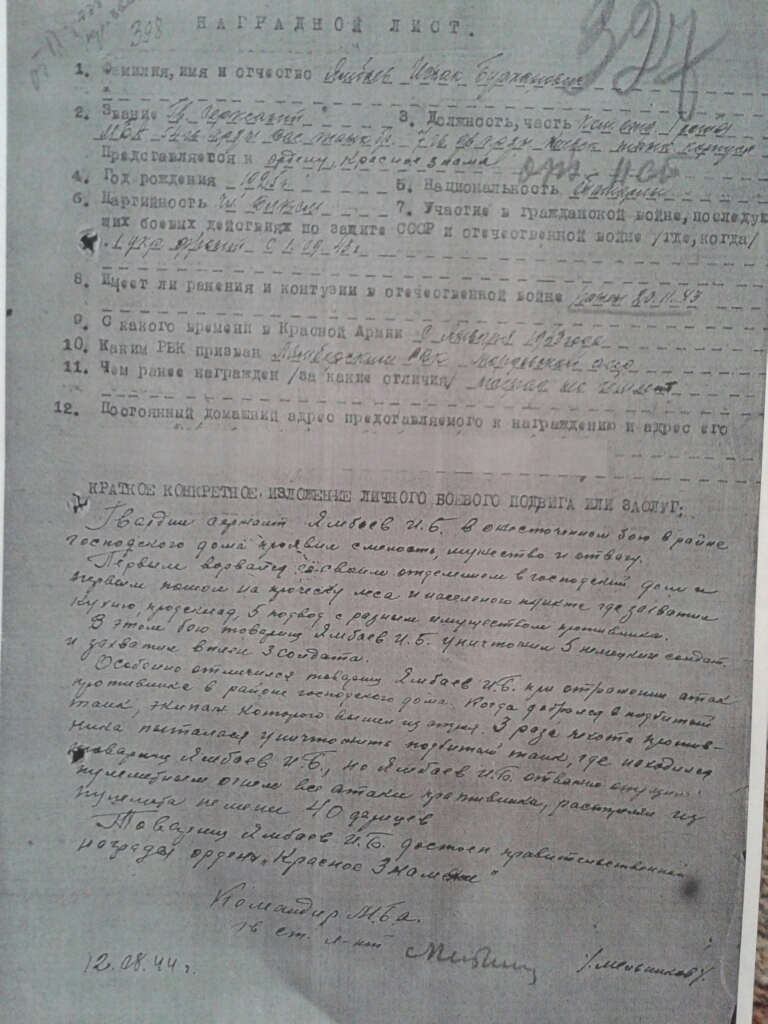 НАГРАДНОЙ ЛИСТ.
398
327
1. Фамилия, имя и отчество Ямбаев Исхак
2. Звание Гв. Сержант 3. Должность, часть
МБА 54 гв. 7 гв. танк корпуса
Представляется к ордену, Красное Знамя
4. Год рождения 1925г 5. Национальность Татарин
6. Партийность 7. Участие в гражданской войне, последую
щих боевых действиях по защите СССР и отечественной войне /где, когда/
1 укр. фронт с
8. Имеет ли ранения и контузии в отечественной войне ранен 20.11.43
9. С какого времени в Красной Армии с Января 1943 года
10. Каким РВК призван РВК Мордовской
11. Чем ранее награжден /за какие отличия/ не имеет
12. Постоянный домашний адрес предоставляемого к награждению и адрес его
КРАТКОЕ КОНКРЕТНОЕ ИЗЛОЖЕНИЕ ЛИЧНОГО БОЕВОГО ПОДВИГА ИЛИ ЗАСЛУГ:
Гвардии сержант Ямбаев И.Б. в ожесточенном бою в районе
господского дома проявил смелость, мужество и отвагу.
Первым ворвался со своим отделением в господский дом и
первым пошел на проческу леса и населеного пункта где захватил
кухню, продсклад, 5 подвод с разным имуществом противника.
В этом бою товарищ Ямбаев И.Б. уничтожил 5 немецких солдат
и захватил в плен 3 солдата.
Особенно отличился товарищ Ямбаев И.Б. при отражении атак
противника в районе господского дома. Когда добрался в подбитый
танк, экипаж которого вышел из строя. 3 раза пехота против-
ника пыталась уничтожить подбитый танк, где находился
товарищ Ямбаев И.Б., но Ямбаев И.Б. отважно отражал
пулеметным огнем все атаки противника, расстреляв из
пулемета не мене 40 фрицев
Товарищ Ямбаев И.Б. достоен правительственной
награды орден "Красное Знамя"
Командир МБА.
гв ст. л-нт /Мельников/.
12.08.44 г.